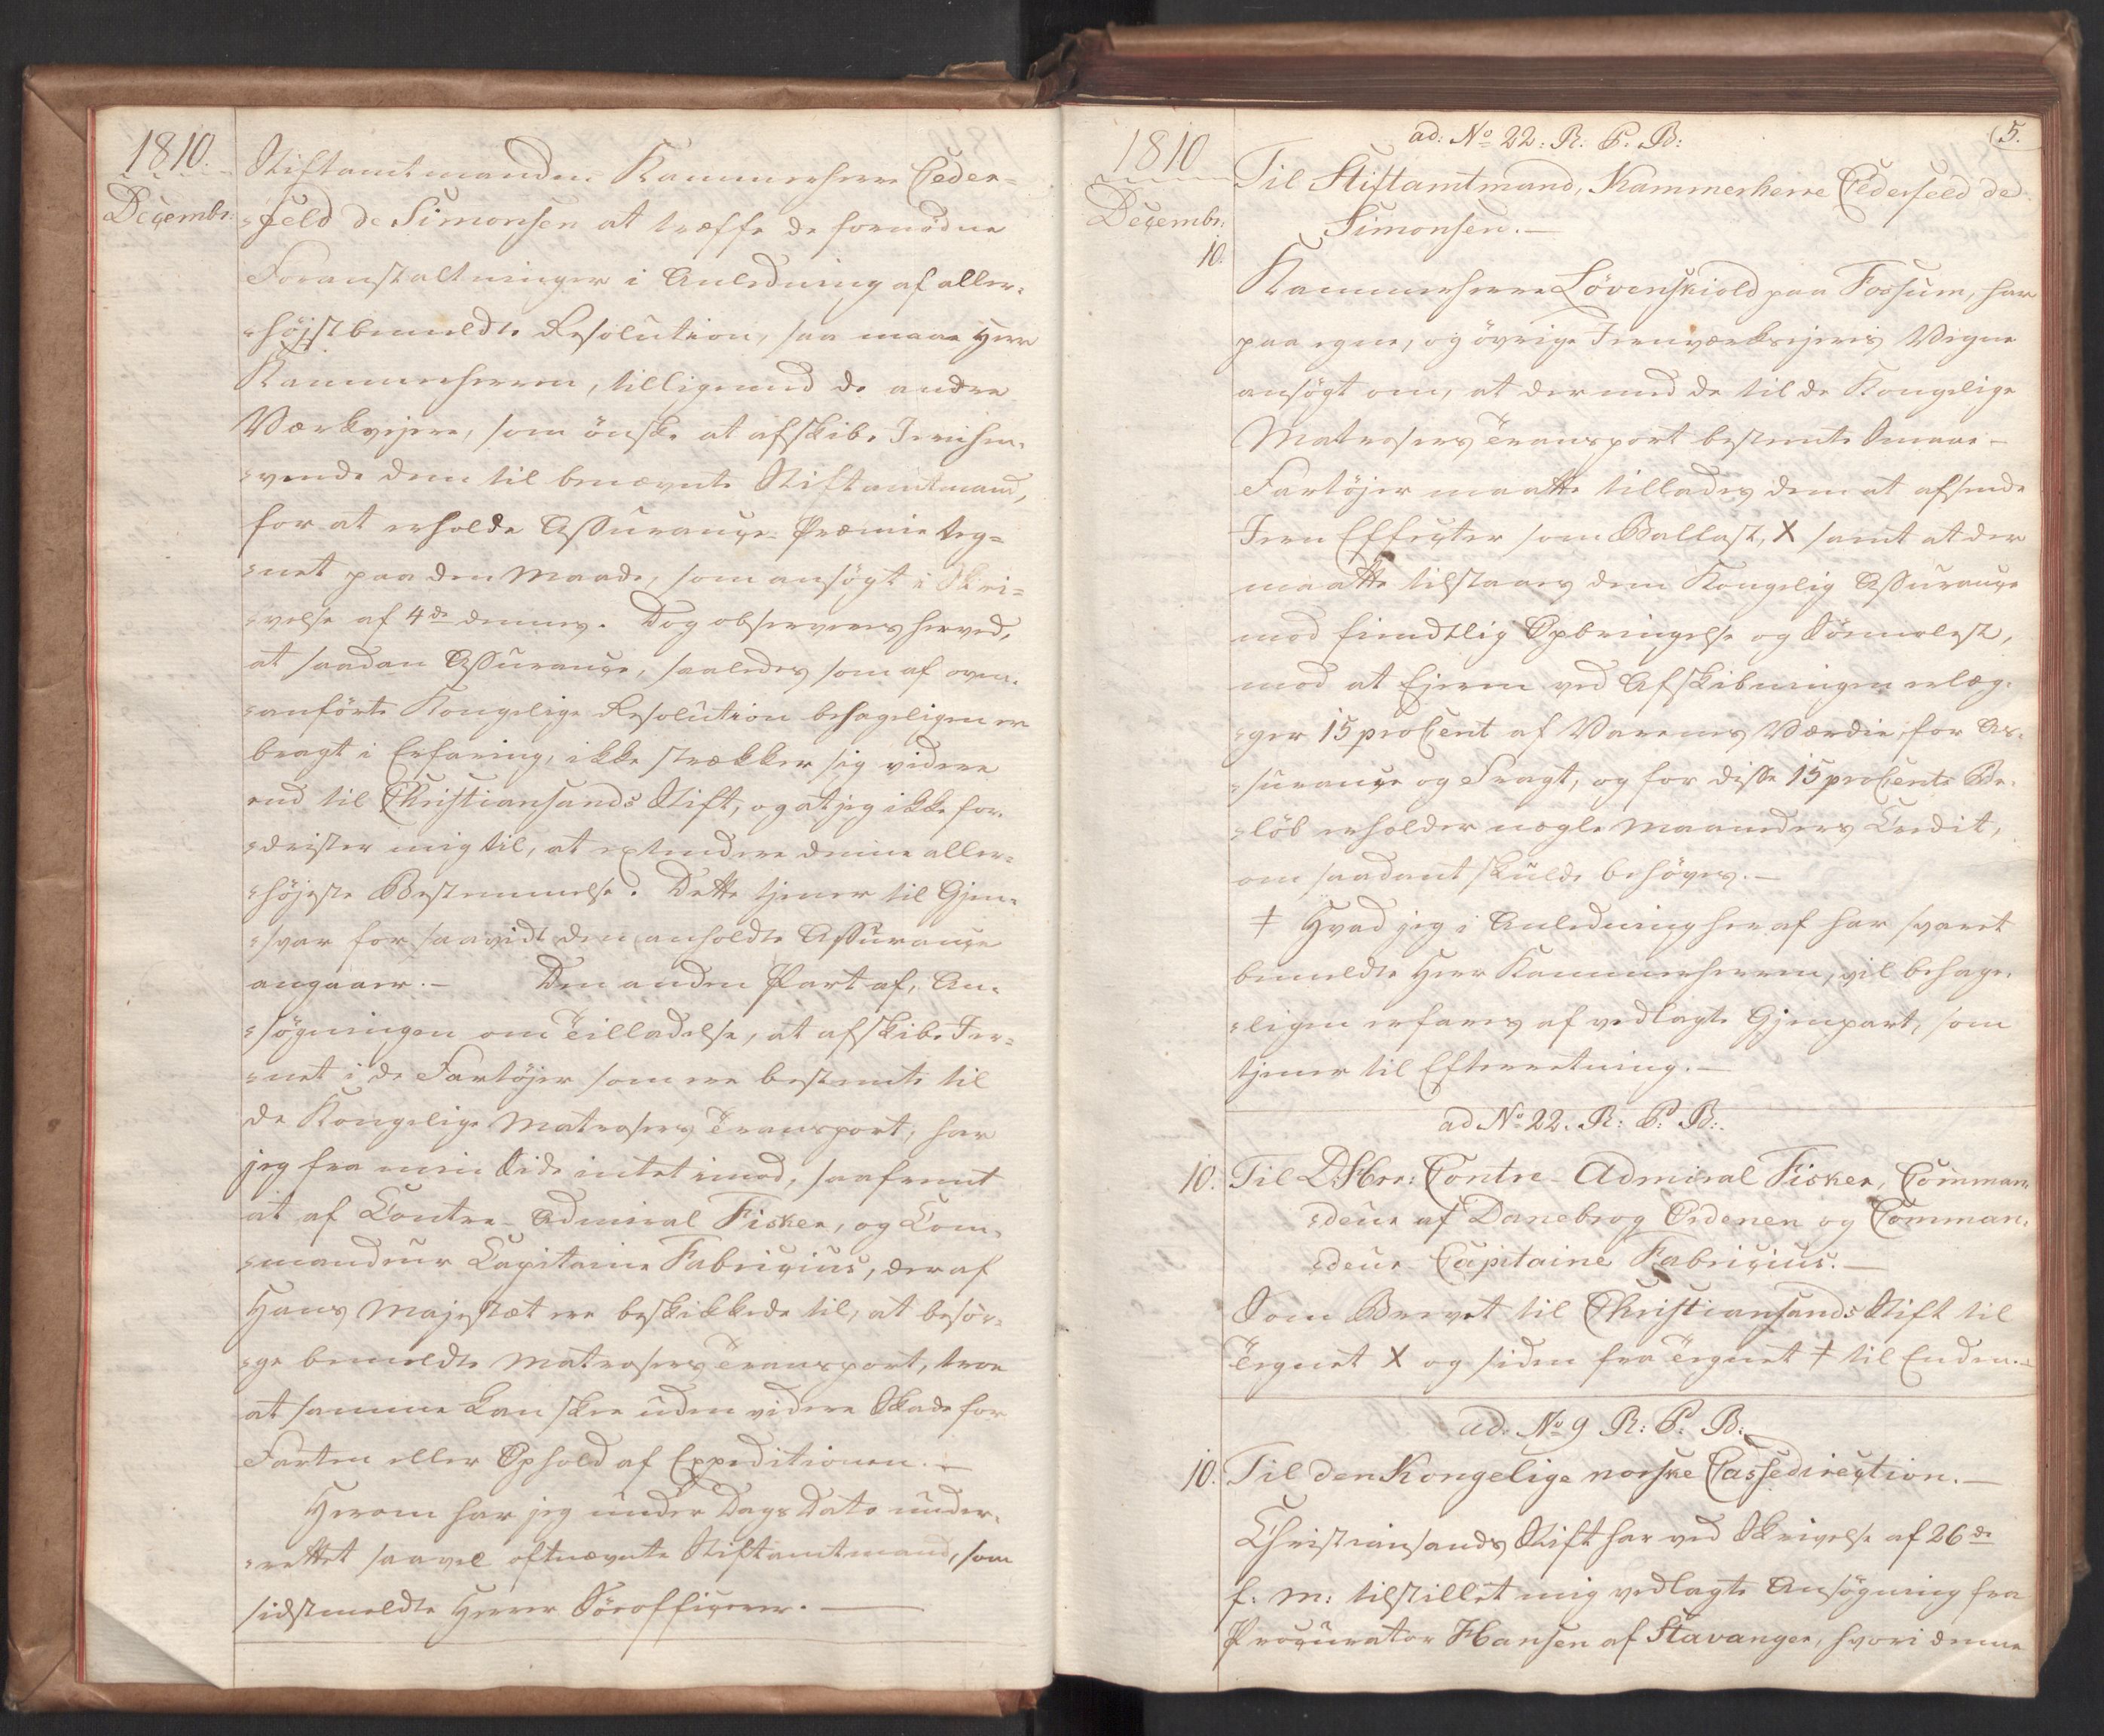 1810.
Decembr:
Stiftamtmanden Kammerherre Ceder=
=feld de Simonsen at træffe de fornödne
Foranstaltninger i Anledning af aller=
=höjstbemeldte Resolution, saa maae Herr
Kammerherren, tilligemed de andre
Værkeejere, som önske at afskibe Jern hen=
=vende dem til benævnte Stiftamtmand,
for at erholde Assurançe-Præmie teg=
=net paa den Maade, som ansögt i Skri=
=velse af 4de dennes. Dog observeres herved,
at saadan Assurançe, saaledes som af oven=
=anförte Kongelige Resolution behageligen er
bragt i Erfaring, ikke strækker sig videre
end til Christiansands Stift, og at jeg ikke for=
=drister mig til, at extendere denne aller=
=höjeste Bestemmelse. Dette tjener til Gjen=
=svar for saavidt den anholdte Assurançe
angaaer.— Den anden Part af, An=
=sögningen om Tilladelse, at afskibe Jer=
=net i de Fartöjer som ere bestemte til
de Kongelige Matrosers Transport, har
jeg fra min Side intet imod, saafremt
at af Contre-Admiral Fisker, og Com=
=mandeur Capitaine Fabriçius, der af
Hans Majestæt ere beskikkede til, at besör=
=ge bemeldte Matrosers Transport, troe
at samme kan skee uden videre Skade for
Farten eller Ophold af Expeditionen.—
Herom har jeg under Dags Dato under=
=rettet saavel oftnævnte Stiftamtmand, som
sidstmeldte Herrer Söeofficerer.—
5.
1810
Decembr:
ad: No 22: R: P. B:
10.
Til Stiftamtmand, Kammerherre Cederfeld de
Simonsen.—
Kammerherre Lövenskiold paa Fossum, har
paa egne, og övrige Jernværksejeres Vegne
ansögt om, at der med de til de Kongelige
Matrosers Transport bestemte Smaae-
Fartöjer maatte tillades dem at afsende
Jern Effecter som Ballast, X samt at der
maatte tilstaaes dem Kongelig Assurançe
mod fiendtlig Opbringelse og Sömolest,
mod at Ejeren ved Afskibningen erlæg=
=ger 15 proCent af Varenes Værdie, for As=
=surançe og Fragt, og for disse 15 proCents Be=
=löb erholder nogle Maaneders Credit,
om saadant skulde behöves.—
‡ Hvad jeg i Anledning heraf har svaret
bemeldte Herr Kammerherren, vil behage=
=ligen erfares af vedlagte Gjenpart, som
tjener til Efterretning.—
ad No 22. R: P: B:.
10. Til D'Hrr: Contre-Admiral Fisker, Comman=
=deur af Danebrog Ordenen og Comman=
=deur Capitaine Fabriçius.—
Som Brevet til Christiansands Stift til
Tegnet X og siden fra Tegnet ‡ til Enden.—
ad. No 9 R: P: B:
10. Til den Kongelige norske Cassedirection.—
Christiansands Stift har ved Skrivelse af 26de
f: M: tilstillet mig vedlagte Ansögning fra
Procurator Hansen af Stavanger, hvori denne